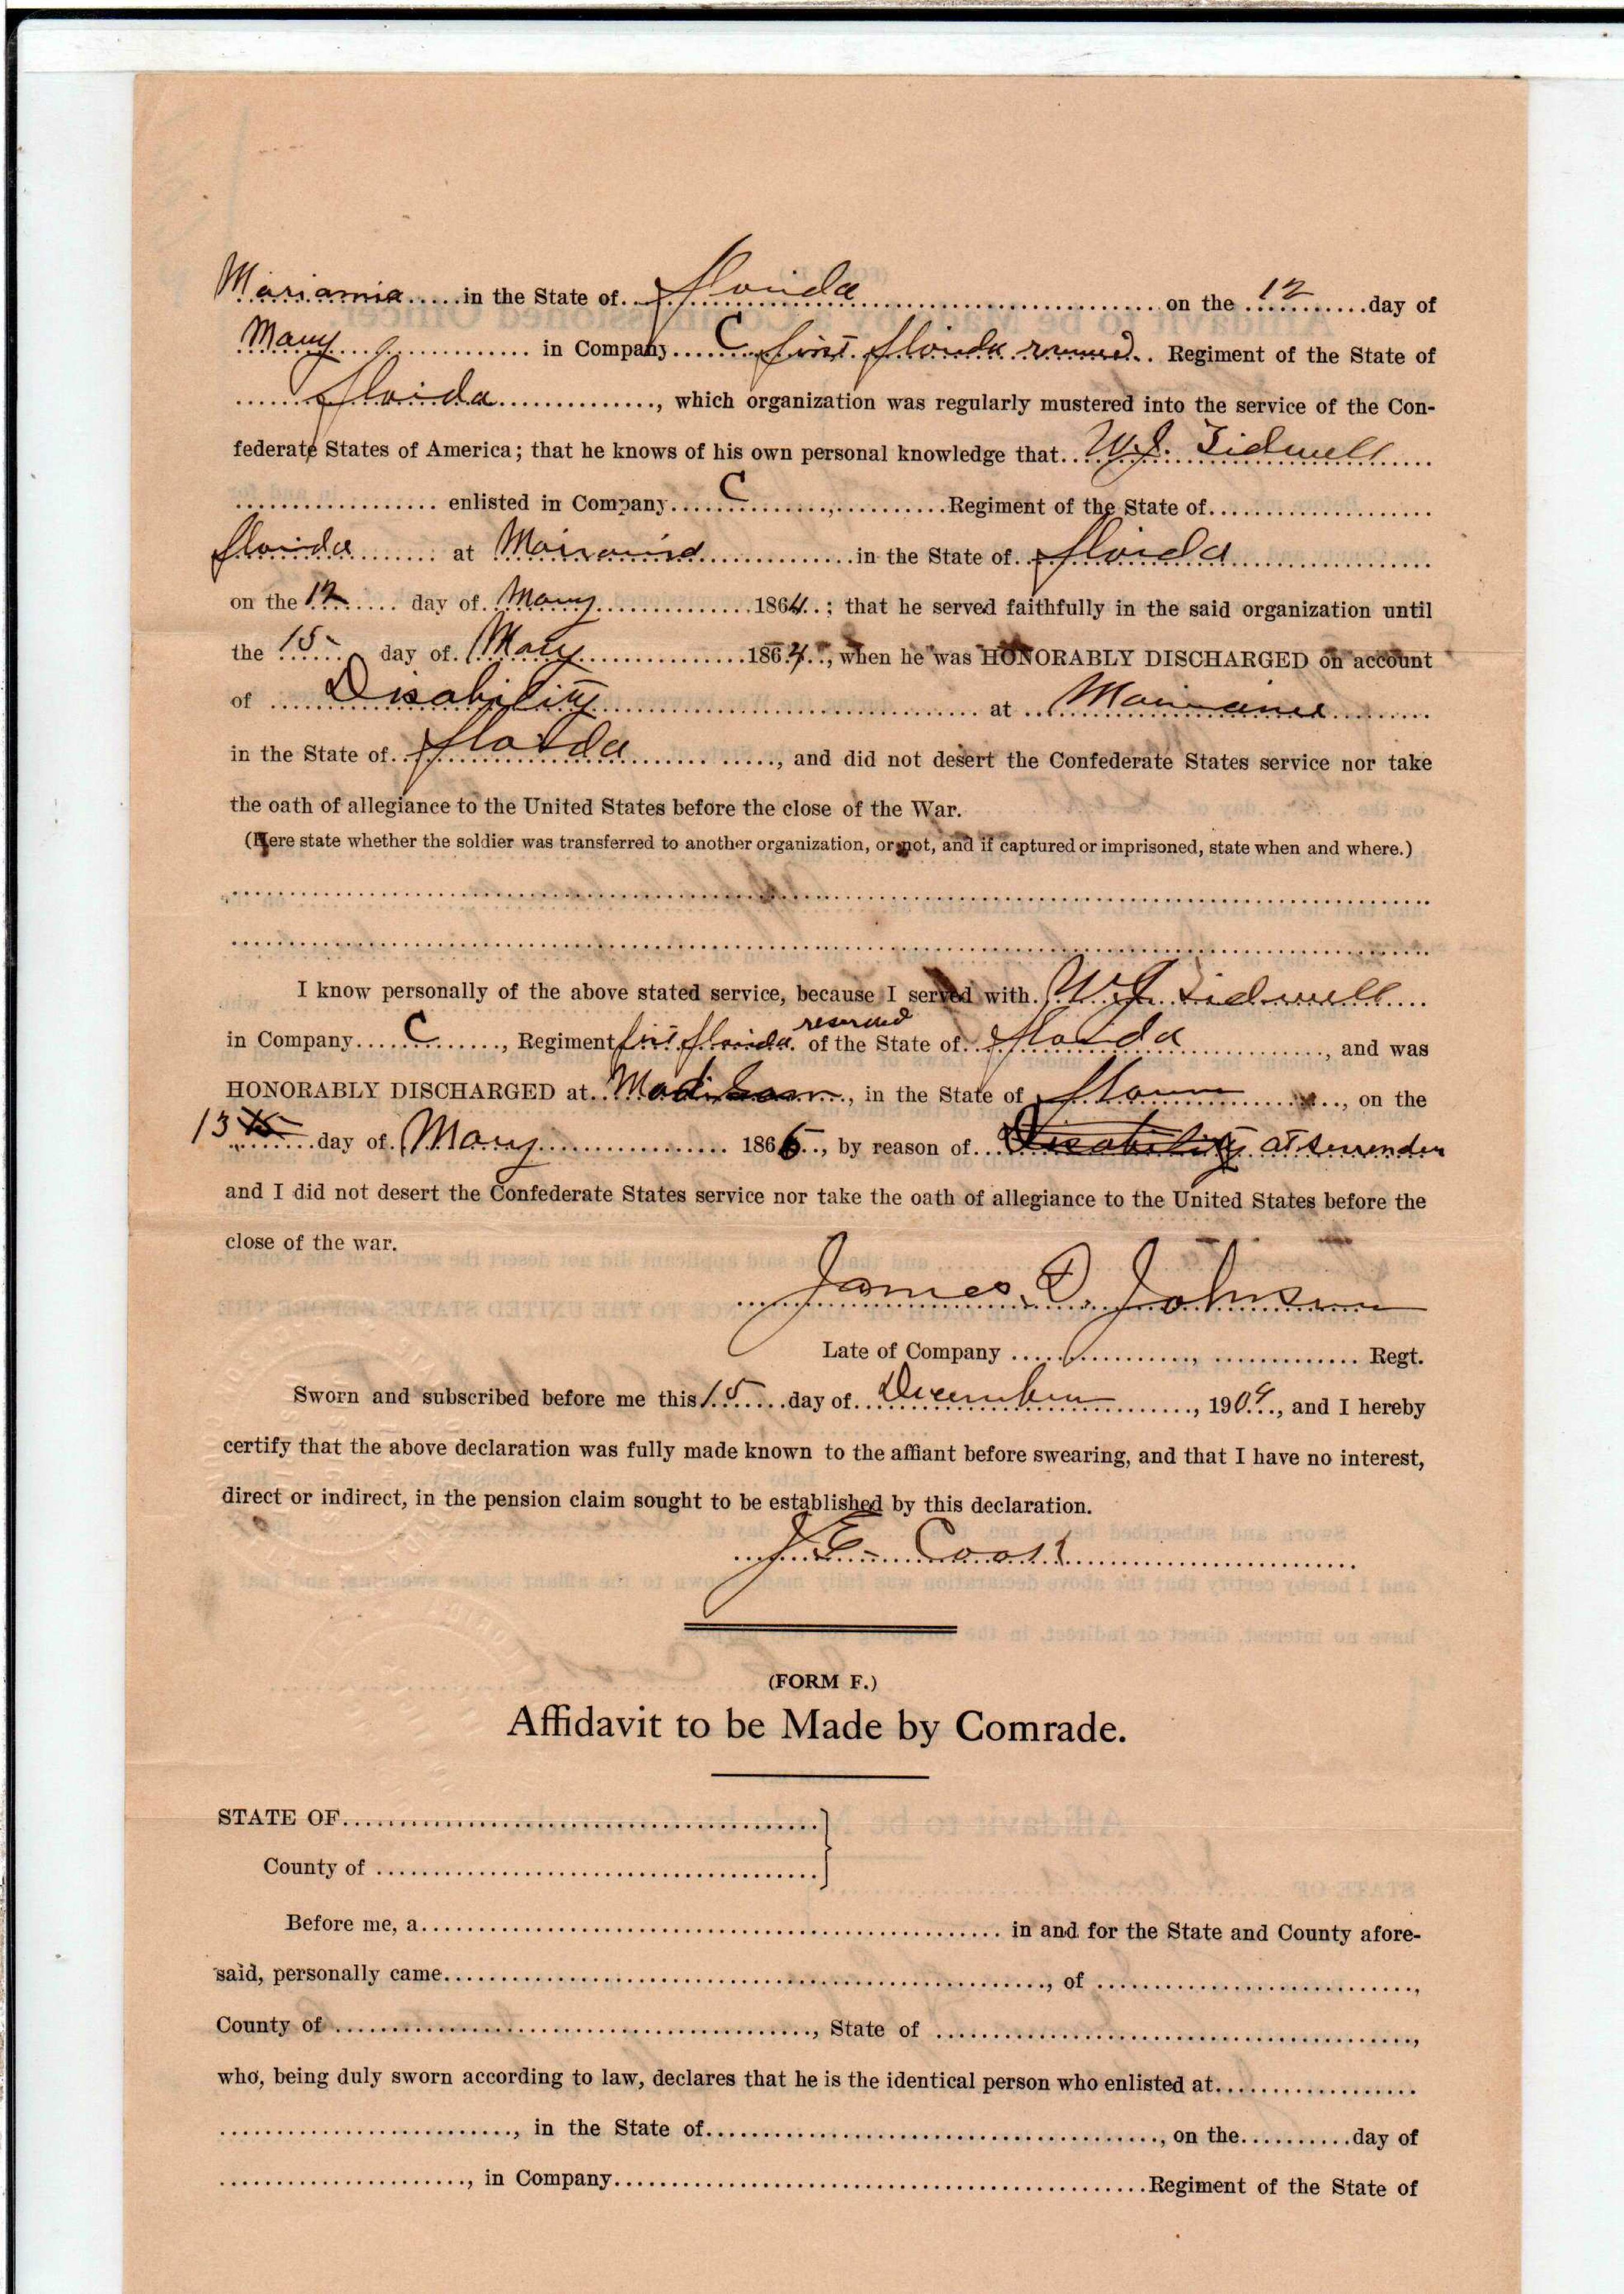 Mariamia in the State of Florida on the 12 day of
Mary in Company C firs Florida Regiment of the State of
Florida, which organization was regularly mustered into the service of the Con-
federate States of America; that he knows of his own personal knowledge that W.J. Tidwell
enlisted in Company C, Regiment of the State of
Florida at in the State of Florida
on the 12 day of Mary 1864; that he served faithfully in the said organization until
the 15 day of Mary 1864, when he was HONORABLY DISCHARGED on account
of Disability at
in the State of Florida, and did not desert the Confederate States service nor take
the oath of allegiance to the United States before the close of the War.
(Here state whether the soldier was transferred to another organization, or not, and if captured or imprisoned, state when and where.)
I know personally of the above stated service, because I served with W.J. Tidwell
reserved
in Company C, Regiment firs Florida of the State of Florida, and was
HONORABLY DISCHARGED at Madison, in the State of, on the
13 15 day of Mary 1865, by reason of Disability at surrender
and I did not desert the Confederate States service nor take the oath of allegiance to the United States before the
close of the war.
James D. Johnson
Late of Company, Regt.
Sworn and subscribed before me this 15 day of December, 1909, and I hereby
certify that the above declaration was fully made known to the affiant before swearing, and that I have no interest,
direct or indirect, in the pension claim sought to be established by this declaration.
J E Coost
(FORM F.)
Affidavit to be Made by Comrade.
STATE OF
County of
Before me, a in and for the State and County afore-
said, personally came, of,
County of, State of,
who, being duly sworn according to law, declares that he is the identical person who enlisted at
, in the State of, on the day of
, in Company Regiment of the State of